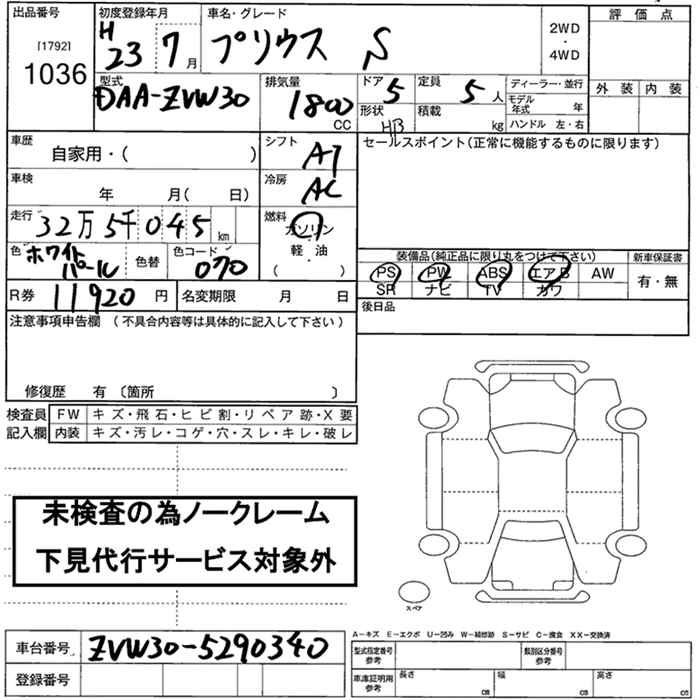 出品番号 初度登録年月 車名・グレード 評価点
[1792] H 23 7月 プリウス S 2WD・4WD
1036
型式 排気量 ドア 定員 ディーラー・並行 外装 内装
DAA-ZVW30 1800 CC 5 5人 モデル年式 年
形状 HB 積載 kg ハンドル 左・右
車歴 シフト セールスポイント(正常に機能するものに限ります)
自家用・( ) AT
車検 冷房
年 月( 日) AC
走行 32万5千045km 燃料
ガソリン
色 ホワイトパール 色替 色コード 070 軽・油
( )
装備品(純正品に限り丸をつけて下さい) 新車保証書
PS PW ABS エアB AW 有・無
SR ナビ TV カワ
R券 11920円 名変期限 月 日
後日品
注意事項申告欄 (不具合内容等は具体的に記入して下さい)
修復歴 有 〔箇所 〕
検査員 FW キズ・飛石・ヒビ割・リペア跡・X要
記入欄 内装 キズ・汚レ・コゲ・穴・スレ・キレ・破レ
未検査の為ノークレーム
下見代行サービス対象外
スペア
A-キズ E-エクボ U-凹み W-補修跡 S-サビ C-腐食 XX-交換済
車台番号 ZVW30-5290340
型式指定番号 参考 類別区分番号 参考
登録番号
車庫証明用 参考 長さ cm 幅 cm 高さ cm